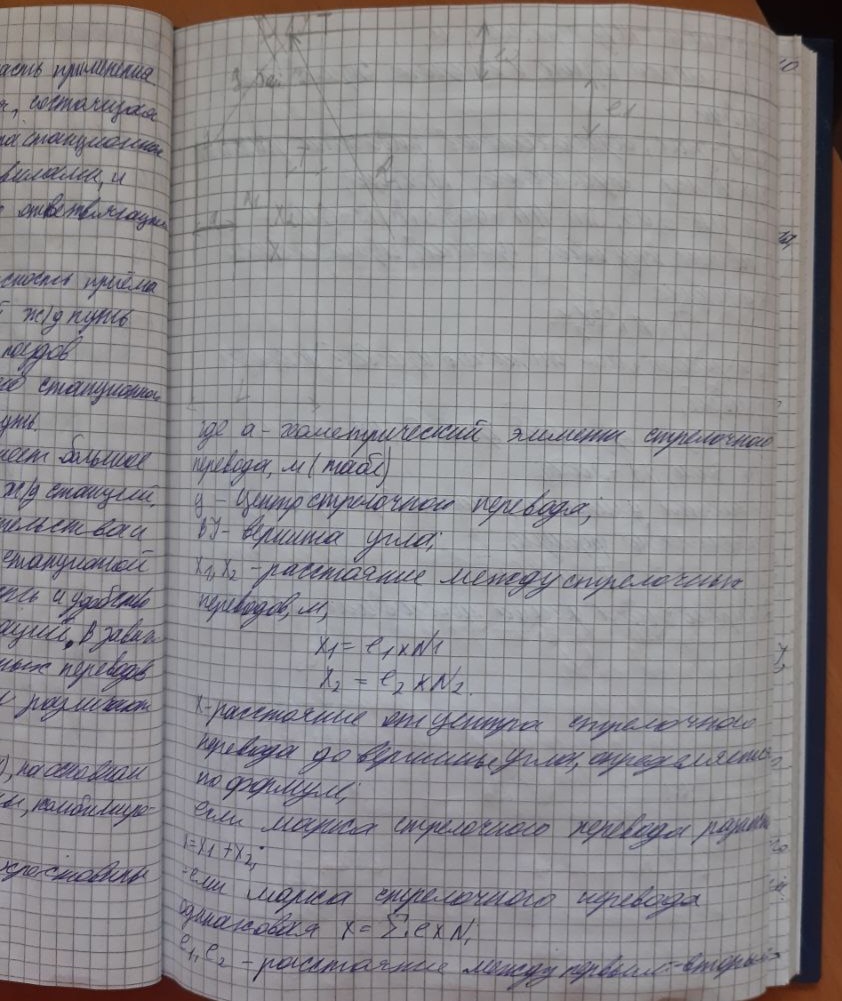 асть применения
, состоящая
та станционной
и
ответвляющи
сность приёма
ж/д путь
поездов
станционной
уть.
меет большое
ж/д станций,
тельствам
станционной
и удобство
аций. В завис
ных переводов
и различают
), на основном
ы, комбиниро-
крестовины
где а - геометрический элемент стрелочного
перевода, м (табл)
у - центр стрелочной перевода;
ВУ - вершина угла;
x₁, x₂ - расстояние между стрелочных
переводов, м,
x₁ = e₁ x N₁
x₂ = e₂ x N₂.
x - расстояние от центра стрелочного
перевода до вершины угла, определяется
по формул;
если марка стрелочного перевода разная
x = x₁ + x₂;
-если марка стрелочного перевода
одинаковая x = Σ e x N,
e₁, e₂ - расстояние между первым-вторым